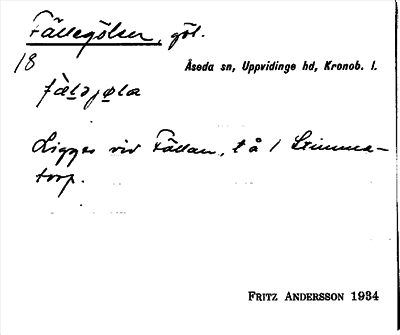 Fällegölen, göl.
18
Åseda sn, Uppvidinge hd, Kronob. l.
fæ̀ləjøla
Ligger vid Fällan, t å 1
torp.
FRITZ ANDERSSON 1934